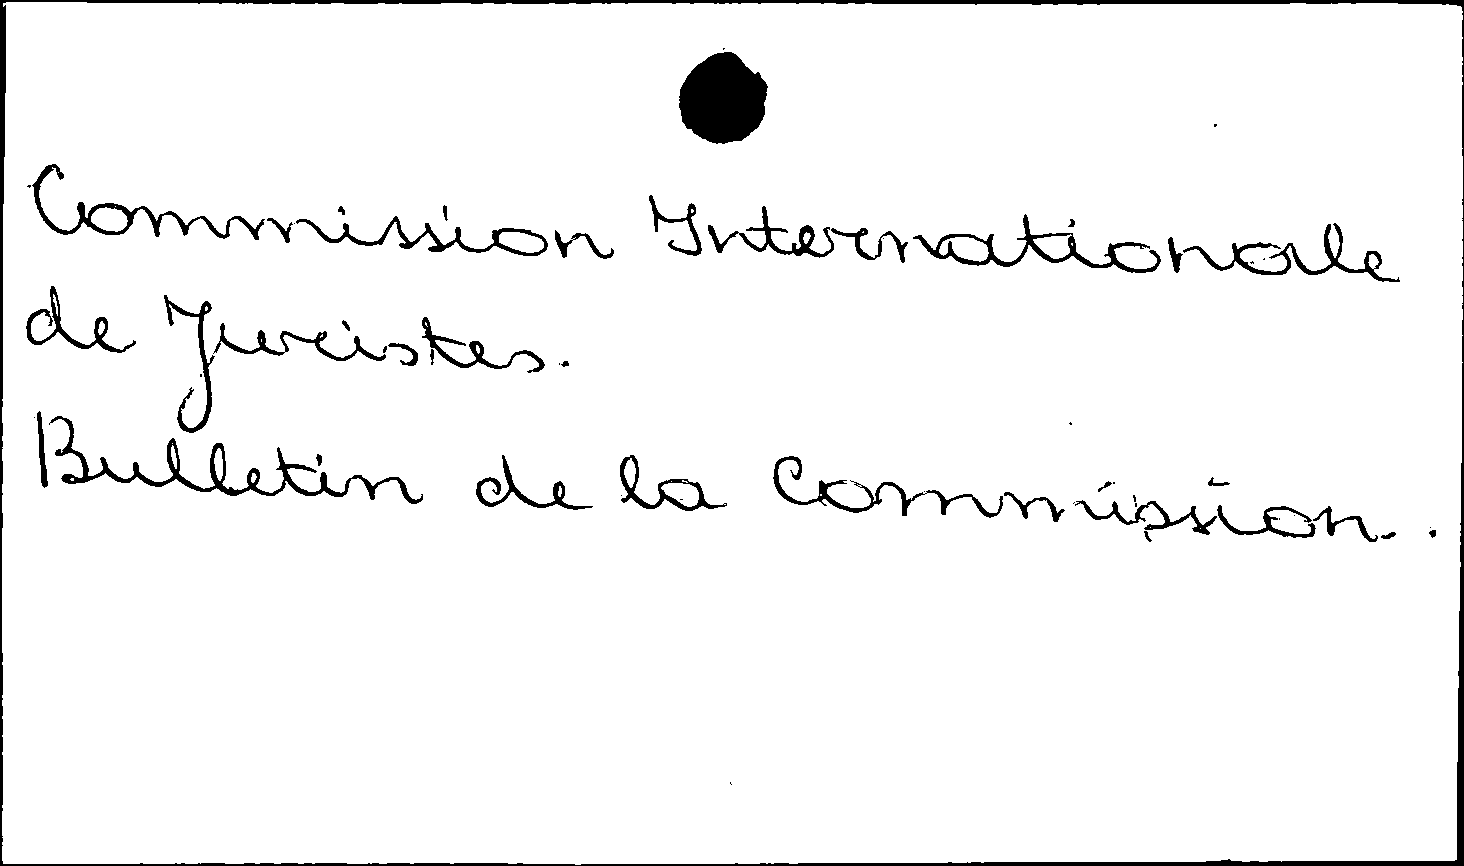 Commission Internationale
de Juristes.
Bulletin de la Commission..